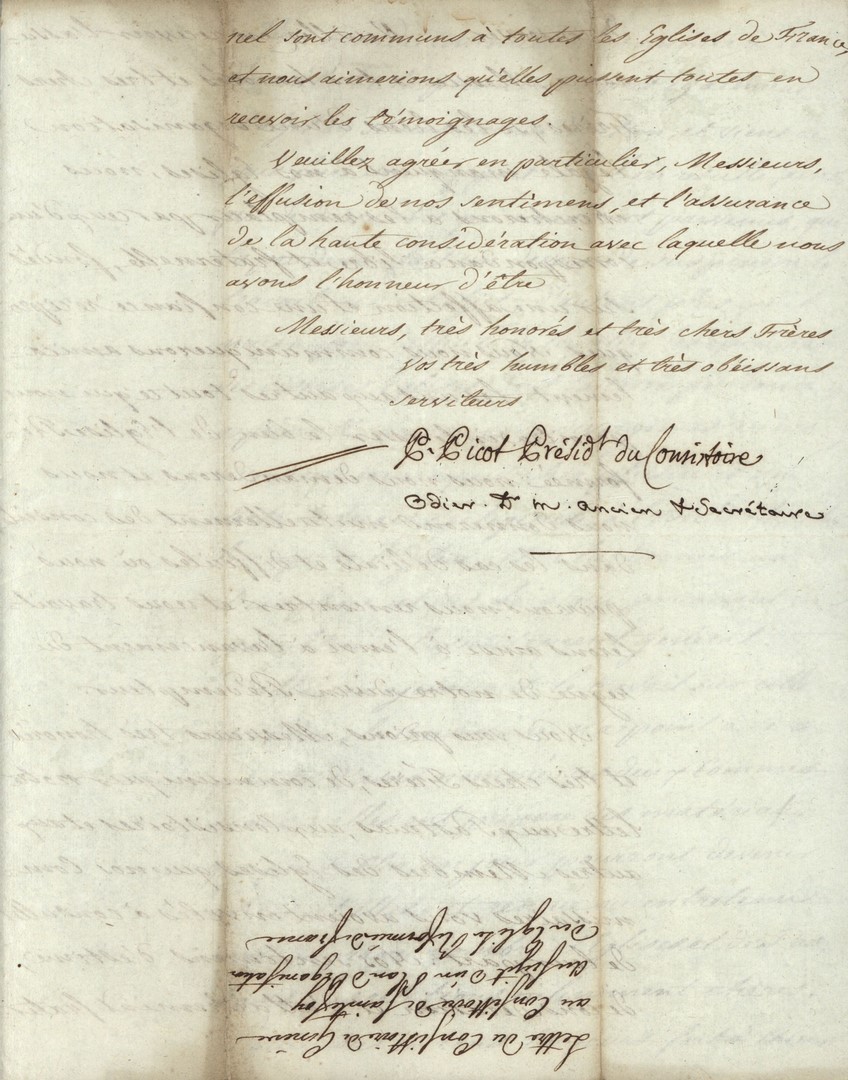 nel sont communs à toutes les Eglises de France,
et nous aimerions qu'elles pussent toutes en
recevoir les témoignages.
Veuillez agréer en particulier, Messieurs,
l'effusion de nos sentimens, et l'assurance
de la haute considération avec laquelle nous
avons l'honneur d'être
Messieurs, très honorés et très chers Frères
vos très humbles et très obéissans
serviteurs
P. Picot Présidt. du Consistoire
Odier. Dr m. ancien & Secrétaire
Lettre du Consistoire de Geneve
au Consistoire de Saintefoy
au sujet d'un Plan d'Organisation
des Eglises Reformées de france